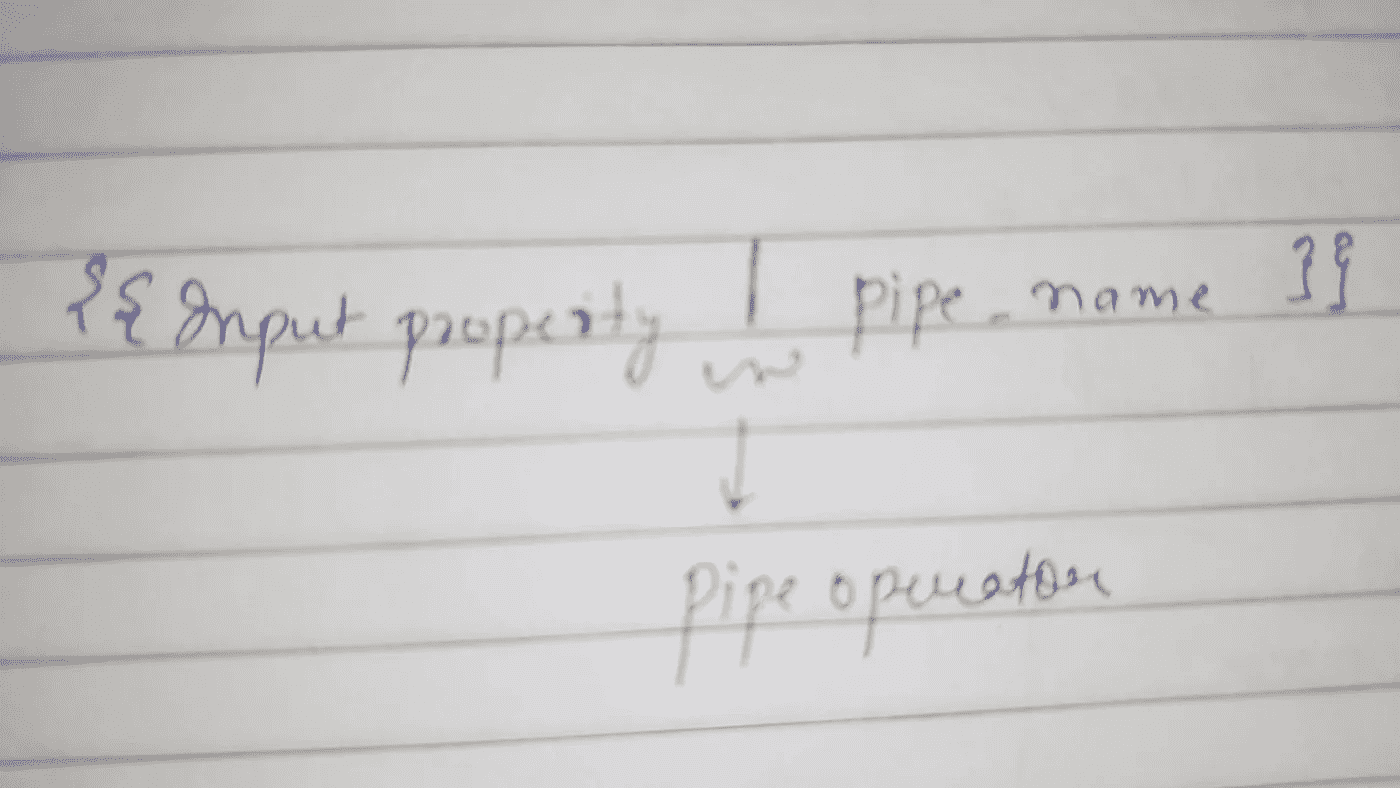 {{ Input property | pipe_name }}
pipe operator